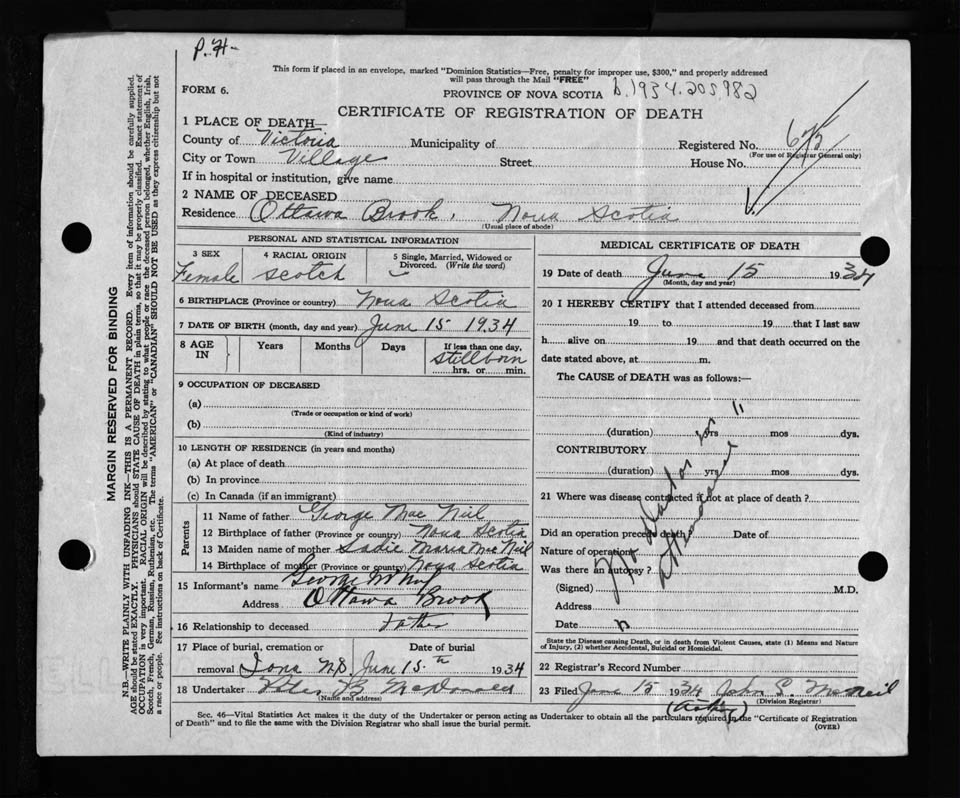 P.H-
This form if placed in an envelope, marked "Dominion Statistics—Free, penalty for improper use, $300," and properly addressed
will pass through the Mail "FREE"
FORM 6.
PROVINCE OF NOVA SCOTIA b.1934.205982
CERTIFICATE OF REGISTRATION OF DEATH
1 PLACE OF DEATH—
County of Victoria Municipality of Registered No.
(For use of Registrar General only)
City or Town Village Street House No.
If in hospital or institution, give name
2 NAME OF DECEASED
Residence Ottawa Brook, Nova Scotia
(Usual place of abode)
PERSONAL AND STATISTICAL INFORMATION
3 SEX 4 RACIAL ORIGIN 5 Single, Married, Widowed or
Divorced. (Write the word)
Female Scotch
6 BIRTHPLACE (Province or country) Nova Scotia
7 DATE OF BIRTH (month, day and year) June 15 1934
8 AGE IN Years Months Days If less than one day,
stillborn
hrs. or min.
9 OCCUPATION OF DECEASED
(a)
(Trade or occupation or kind of work)
(b)
(Kind of industry)
10 LENGTH OF RESIDENCE (in years and months)
(a) At place of death
(b) In province
(c) In Canada (if an immigrant)
Parents
11 Name of father George Mac Neil
12 Birthplace of father (Province or country) Nova Scotia
13 Maiden name of mother Sadie Maria Mac Neil
14 Birthplace of mother (Province or country) Nova Scotia
15 Informant's name George
Address Ottawa Brook
16 Relationship to deceased Father
17 Place of burial, cremation or Date of burial
removal Iona June 15th 1934
18 Undertaker Peter B McDonald
(Name and address)
MEDICAL CERTIFICATE OF DEATH
19 Date of death June 15 1934
(Month, day and year)
20 I HEREBY CERTIFY that I attended deceased from
19 to 19 that I last saw
h alive on 19 and that death occurred on the
date stated above, at m.
The CAUSE of DEATH was as follows:—
(duration) yrs mos dys.
CONTRIBUTORY
(duration) yrs mos dys.
21 Where was disease contracted if not at place of death ?
Did an operation precede death Date of
Nature of operation
Was there an autopsy ?
(Signed) M.D.
Address
Date
No Doctor in
attendance
State the Disease causing Death, or in death from Violent Causes, state (1) Means and Nature
of Injury, (2) whether Accidental, Suicidal or Homicidal.
22 Registrar's Record Number
23 Filed June 15 1934 John S. McNeil
(Division Registrar)
Sec. 46—Vital Statistics Act makes it the duty of the Undertaker or person acting as Undertaker to obtain all the particulars required in the "Certificate of Registration
of Death" and to file the same with the Division Registrar who shall issue the burial permit.
(OVER)
MARGIN RESERVED FOR BINDING
N.B.—WRITE PLAINLY WITH UNFADING INK—THIS IS A PERMANENT RECORD. Every item of information should be carefully supplied.
AGE should be stated EXACTLY. PHYSICIANS should STATE CAUSE OF DEATH in plain terms, so that it may be properly classified. Exact statement of
OCCUPATION is very important. RACIAL ORIGIN will be described by stating to what people or race the deceased person belonged, whether English, Irish,
Scotch, French, German, Russian, Ruthenian, etc. The terms "AMERICAN" or "CANADIAN" SHOULD NOT BE USED as they express citizenship but not
a race or people. See instructions on back of Certificate.